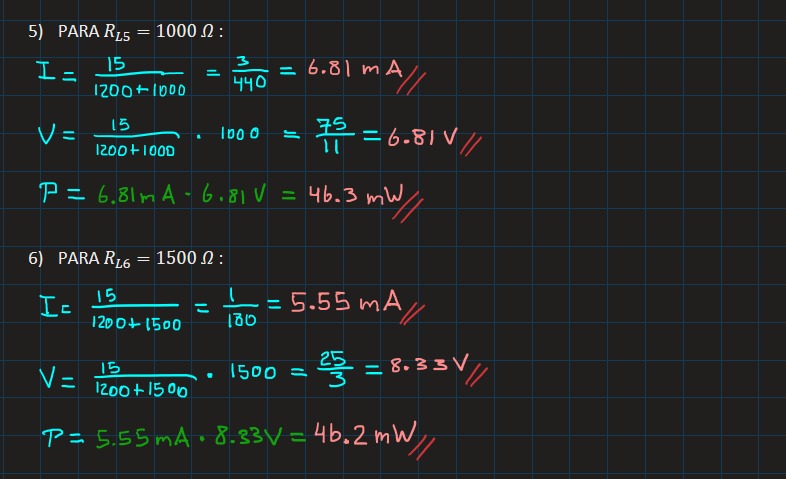 5) PARA R_L5 = 1000 Ω :
I = 15/(1200+1000) = 3/440 = 6.81 mA //
V = 15/(1200+1000) · 1000 = 75/11 = 6.81 V //
P = 6.81mA · 6.81V = 46.3 mW //
6) PARA R_L6 = 1500 Ω :
I = 15/(1200+1500) = 1/180 = 5.55 mA //
V = 15/(1200+1500) · 1500 = 25/3 = 8.33 V //
P = 5.55mA · 8.33V = 46.2 mW //